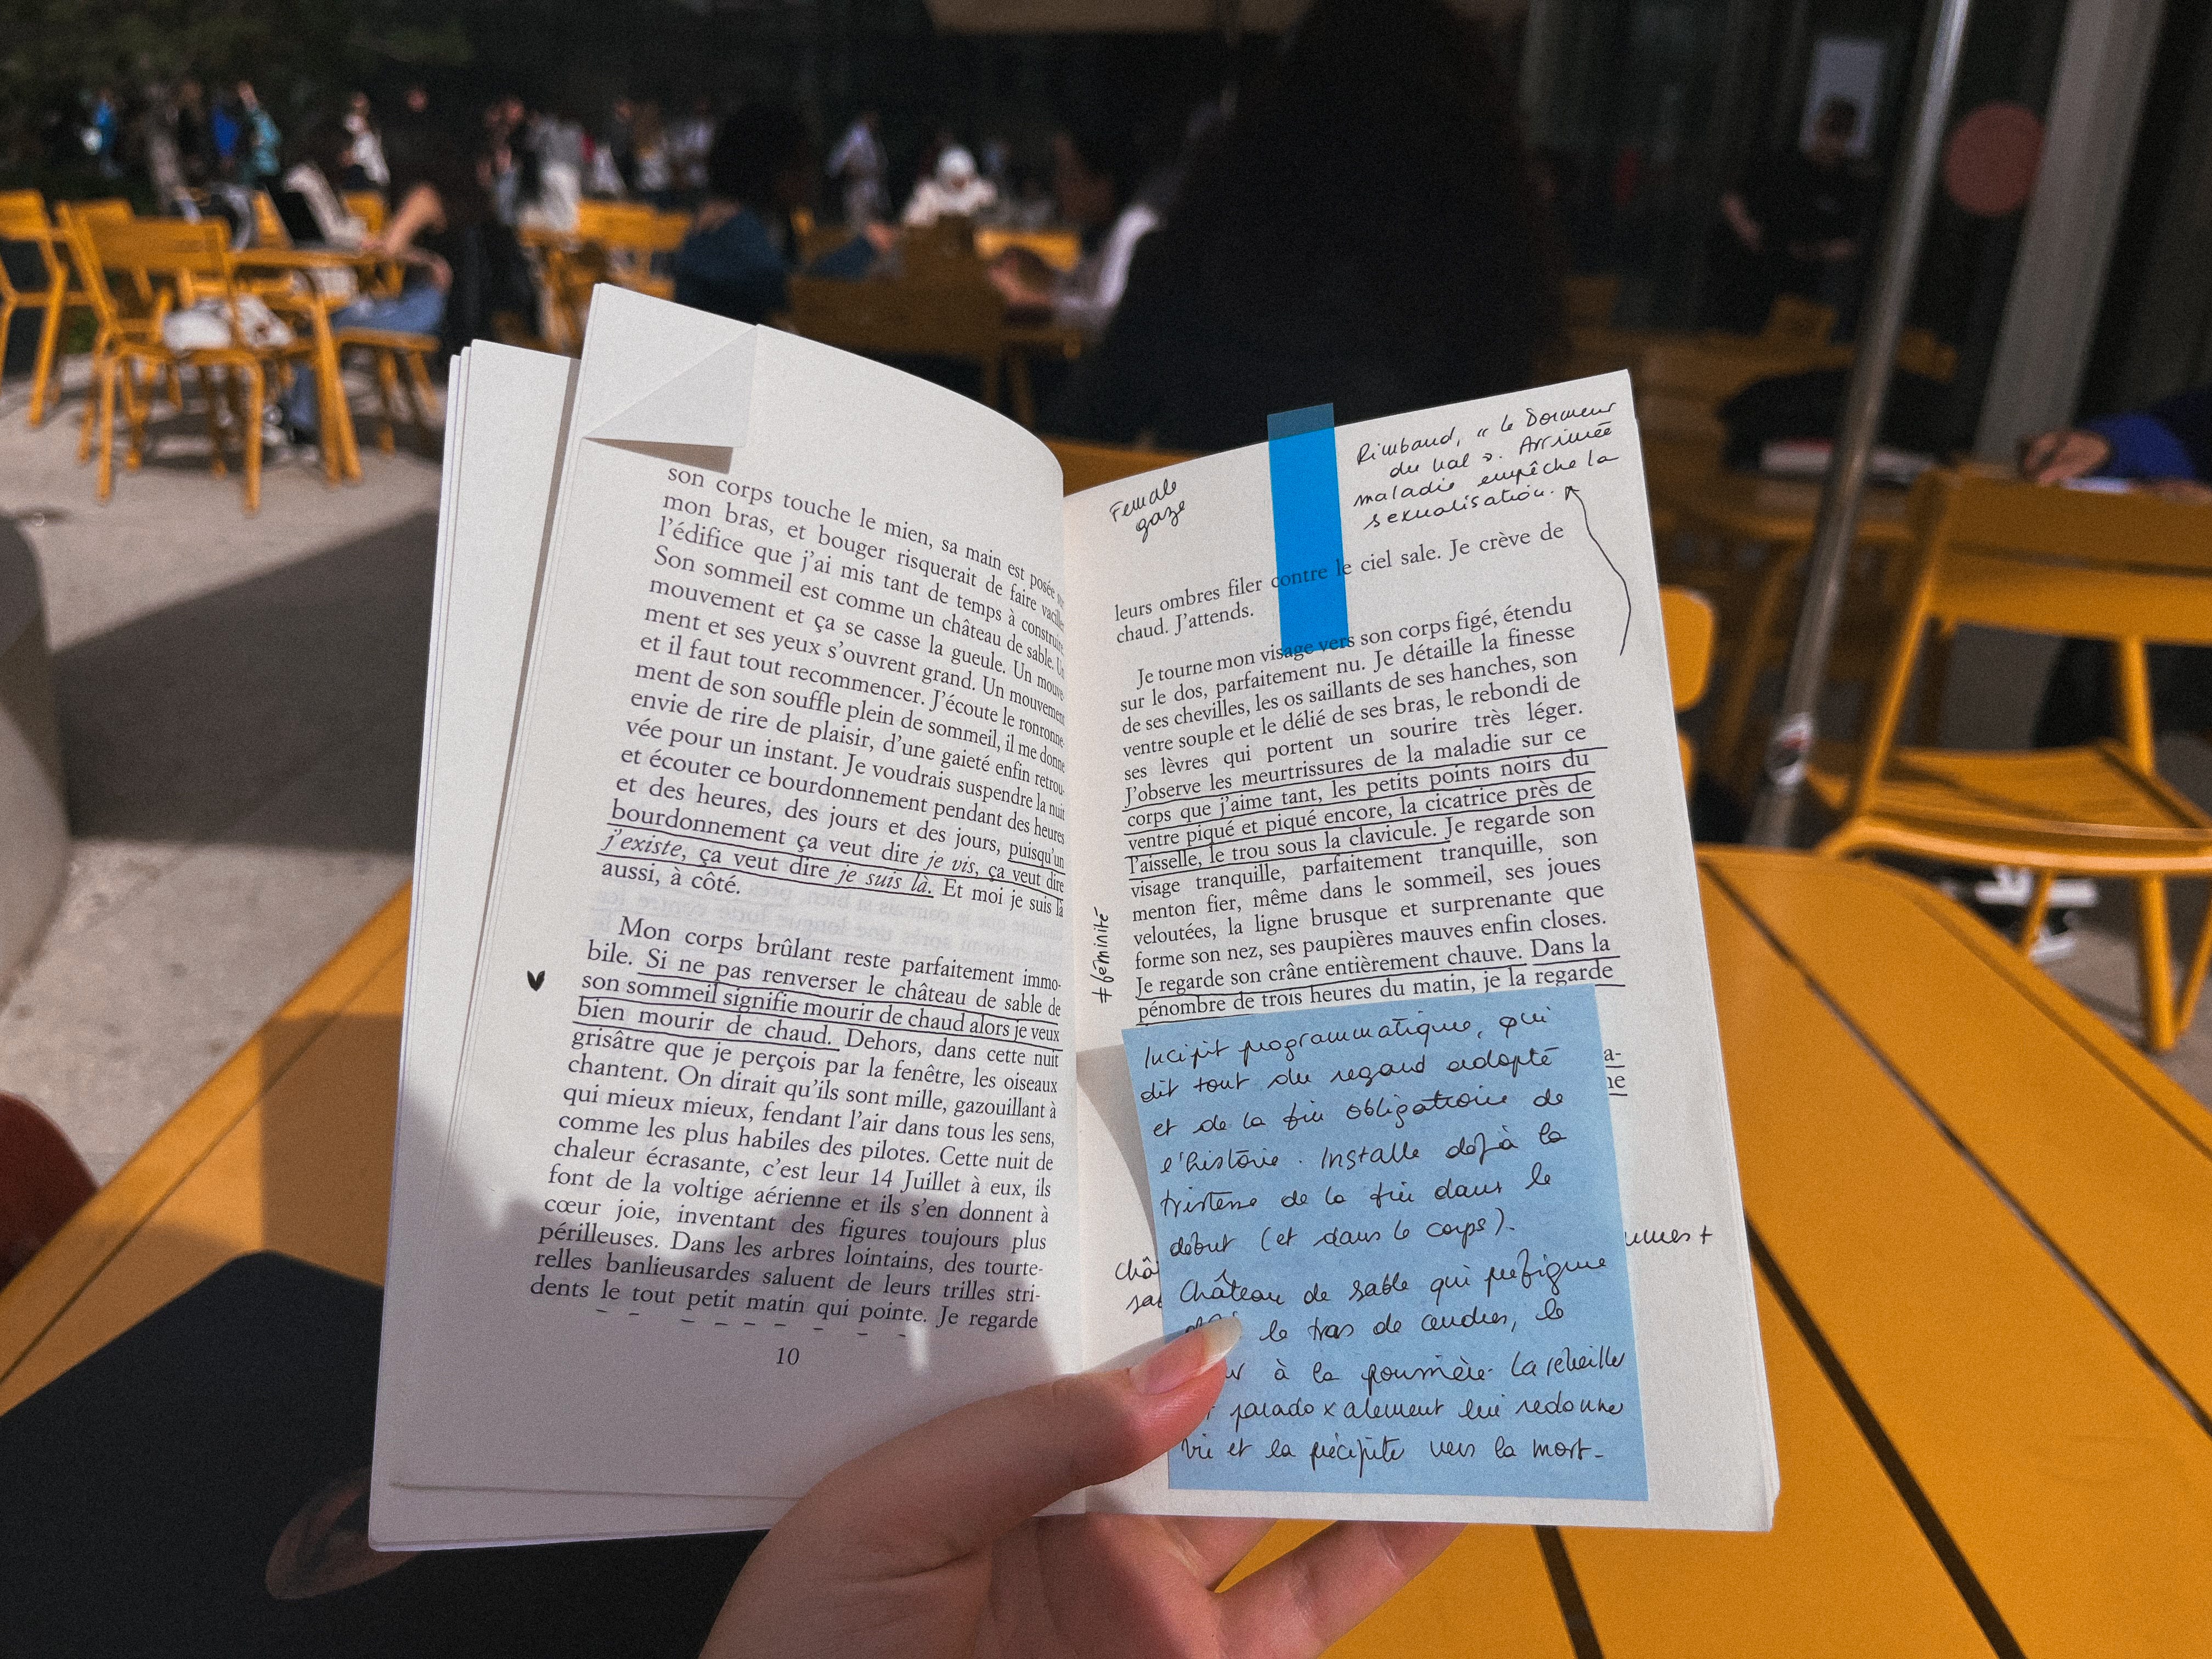 son corps touche le mien, sa main est posée sur
mon bras, et bouger risquerait de faire vaciller
l'édifice que j'ai mis tant de temps à construire.
Son sommeil est comme un château de sable. Un
mouvement et ça se casse la gueule. Un mouve
ment et ses yeux s'ouvrent grand. Un mouvement
et il faut tout recommencer. J'écoute le ronronne
ment de son souffle plein de sommeil, il me donne
envie de rire de plaisir, d'une gaieté enfin retrou-
vée pour un instant. Je voudrais suspendre la nuit
et écouter ce bourdonnement pendant des heures
et des heures, des jours et des jours, puisqu'un
bourdonnement ça veut dire je vis, ça veut dire
j'existe, ça veut dire je suis là. Et moi je suis là
aussi, à côté.
Mon corps brûlant reste parfaitement immo-
bile. Si ne pas renverser le château de sable de
son sommeil signifie mourir de chaud alors je veux
bien mourir de chaud. Dehors, dans cette nuit
grisâtre que je perçois par la fenêtre, les oiseaux
chantent. On dirait qu'ils sont mille, gazouillant à
qui mieux mieux, fendant l'air dans tous les sens,
comme les plus habiles des pilotes. Cette nuit de
chaleur écrasante, c'est leur 14 Juillet à eux, ils
font de la voltige aérienne et ils s'en donnent à
cœur joie, inventant des figures toujours plus
périlleuses. Dans les arbres lointains, des tourte-
relles banlieusardes saluent de leurs trilles stri-
dents le tout petit matin qui pointe. Je regarde
10
Female
gaze
Rimbaud, « Le Dormeur
du val ». Arrimée
maladie empêche la
sexualisation.
leurs ombres filer contre le ciel sale. Je crève de
chaud. J'attends.
Je tourne mon visage vers son corps figé, étendu
sur le dos, parfaitement nu. Je détaille la finesse
de ses chevilles, les os saillants de ses hanches, son
ventre souple et le délié de ses bras, le rebondi de
ses lèvres qui portent un sourire très léger.
J'observe les meurtrissures de la maladie sur ce
corps que j'aime tant, les petits points noirs du
ventre piqué et piqué encore, la cicatrice près de
l'aisselle, le trou sous la clavicule. Je regarde son
visage tranquille, parfaitement tranquille, son
menton fier, même dans le sommeil, ses joues
veloutées, la ligne brusque et surprenante que
forme son nez, ses paupières mauves enfin closes.
Je regarde son crâne entièrement chauve. Dans la
pénombre de trois heures du matin, je la regarde
≠ féminité
Incipit programmatique, qui
dit tout du regard adopté
et de la fin obligatoire de
l'histoire. Installe déjà la
tristesse de la fin dans le
début (et dans le corps).
Château de sable qui préfigure
le tas de cendres, le
à la poussière. La réveiller
paradoxalement lui redonne
vie et la précipite vers la mort.